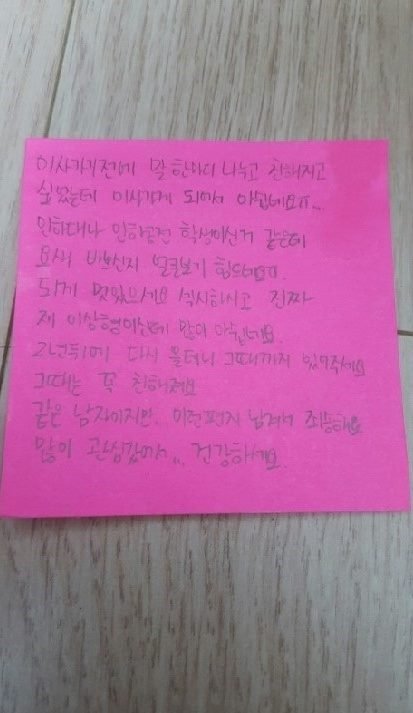 이사가기전에 말 한마디 나누고 친해지고
싶었는데 이사가게 되어서 아쉽네요ㅠ...
인하대나 인하공전 학생이신거 같은데
요새 바쁘신지 얼굴보기 힘드네요ㅠ.
되게 멋있으세요 섹시하시고 진짜
제 이상형이신데 많이 아쉽네요.
2년뒤에 다시 올테니 그때까지 있어주세요
그때는 꼭 친해져요
같은 남자이지만, 이런편지 남겨서 죄송해요
많이 관심갔어서... 건강하세요.